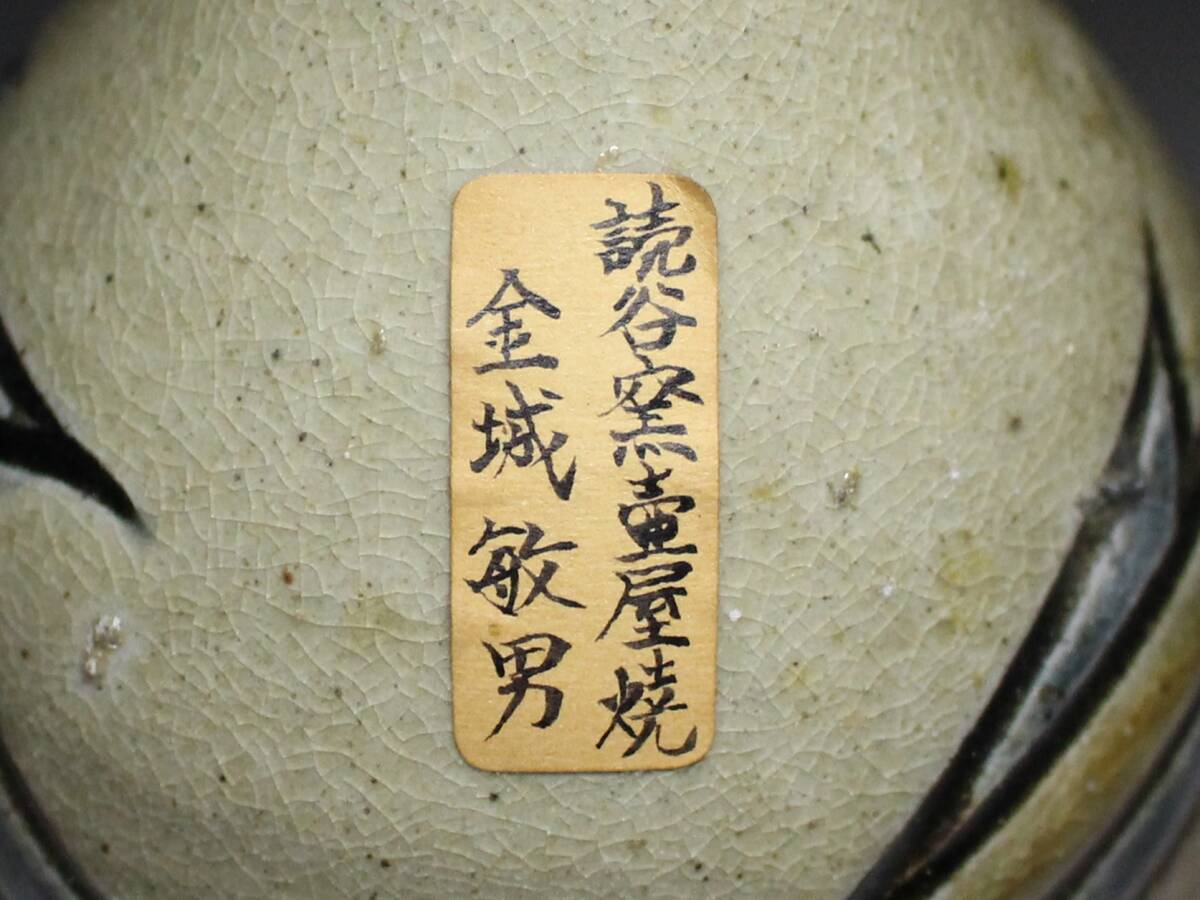 読谷窯壷屋焼
金城敏男